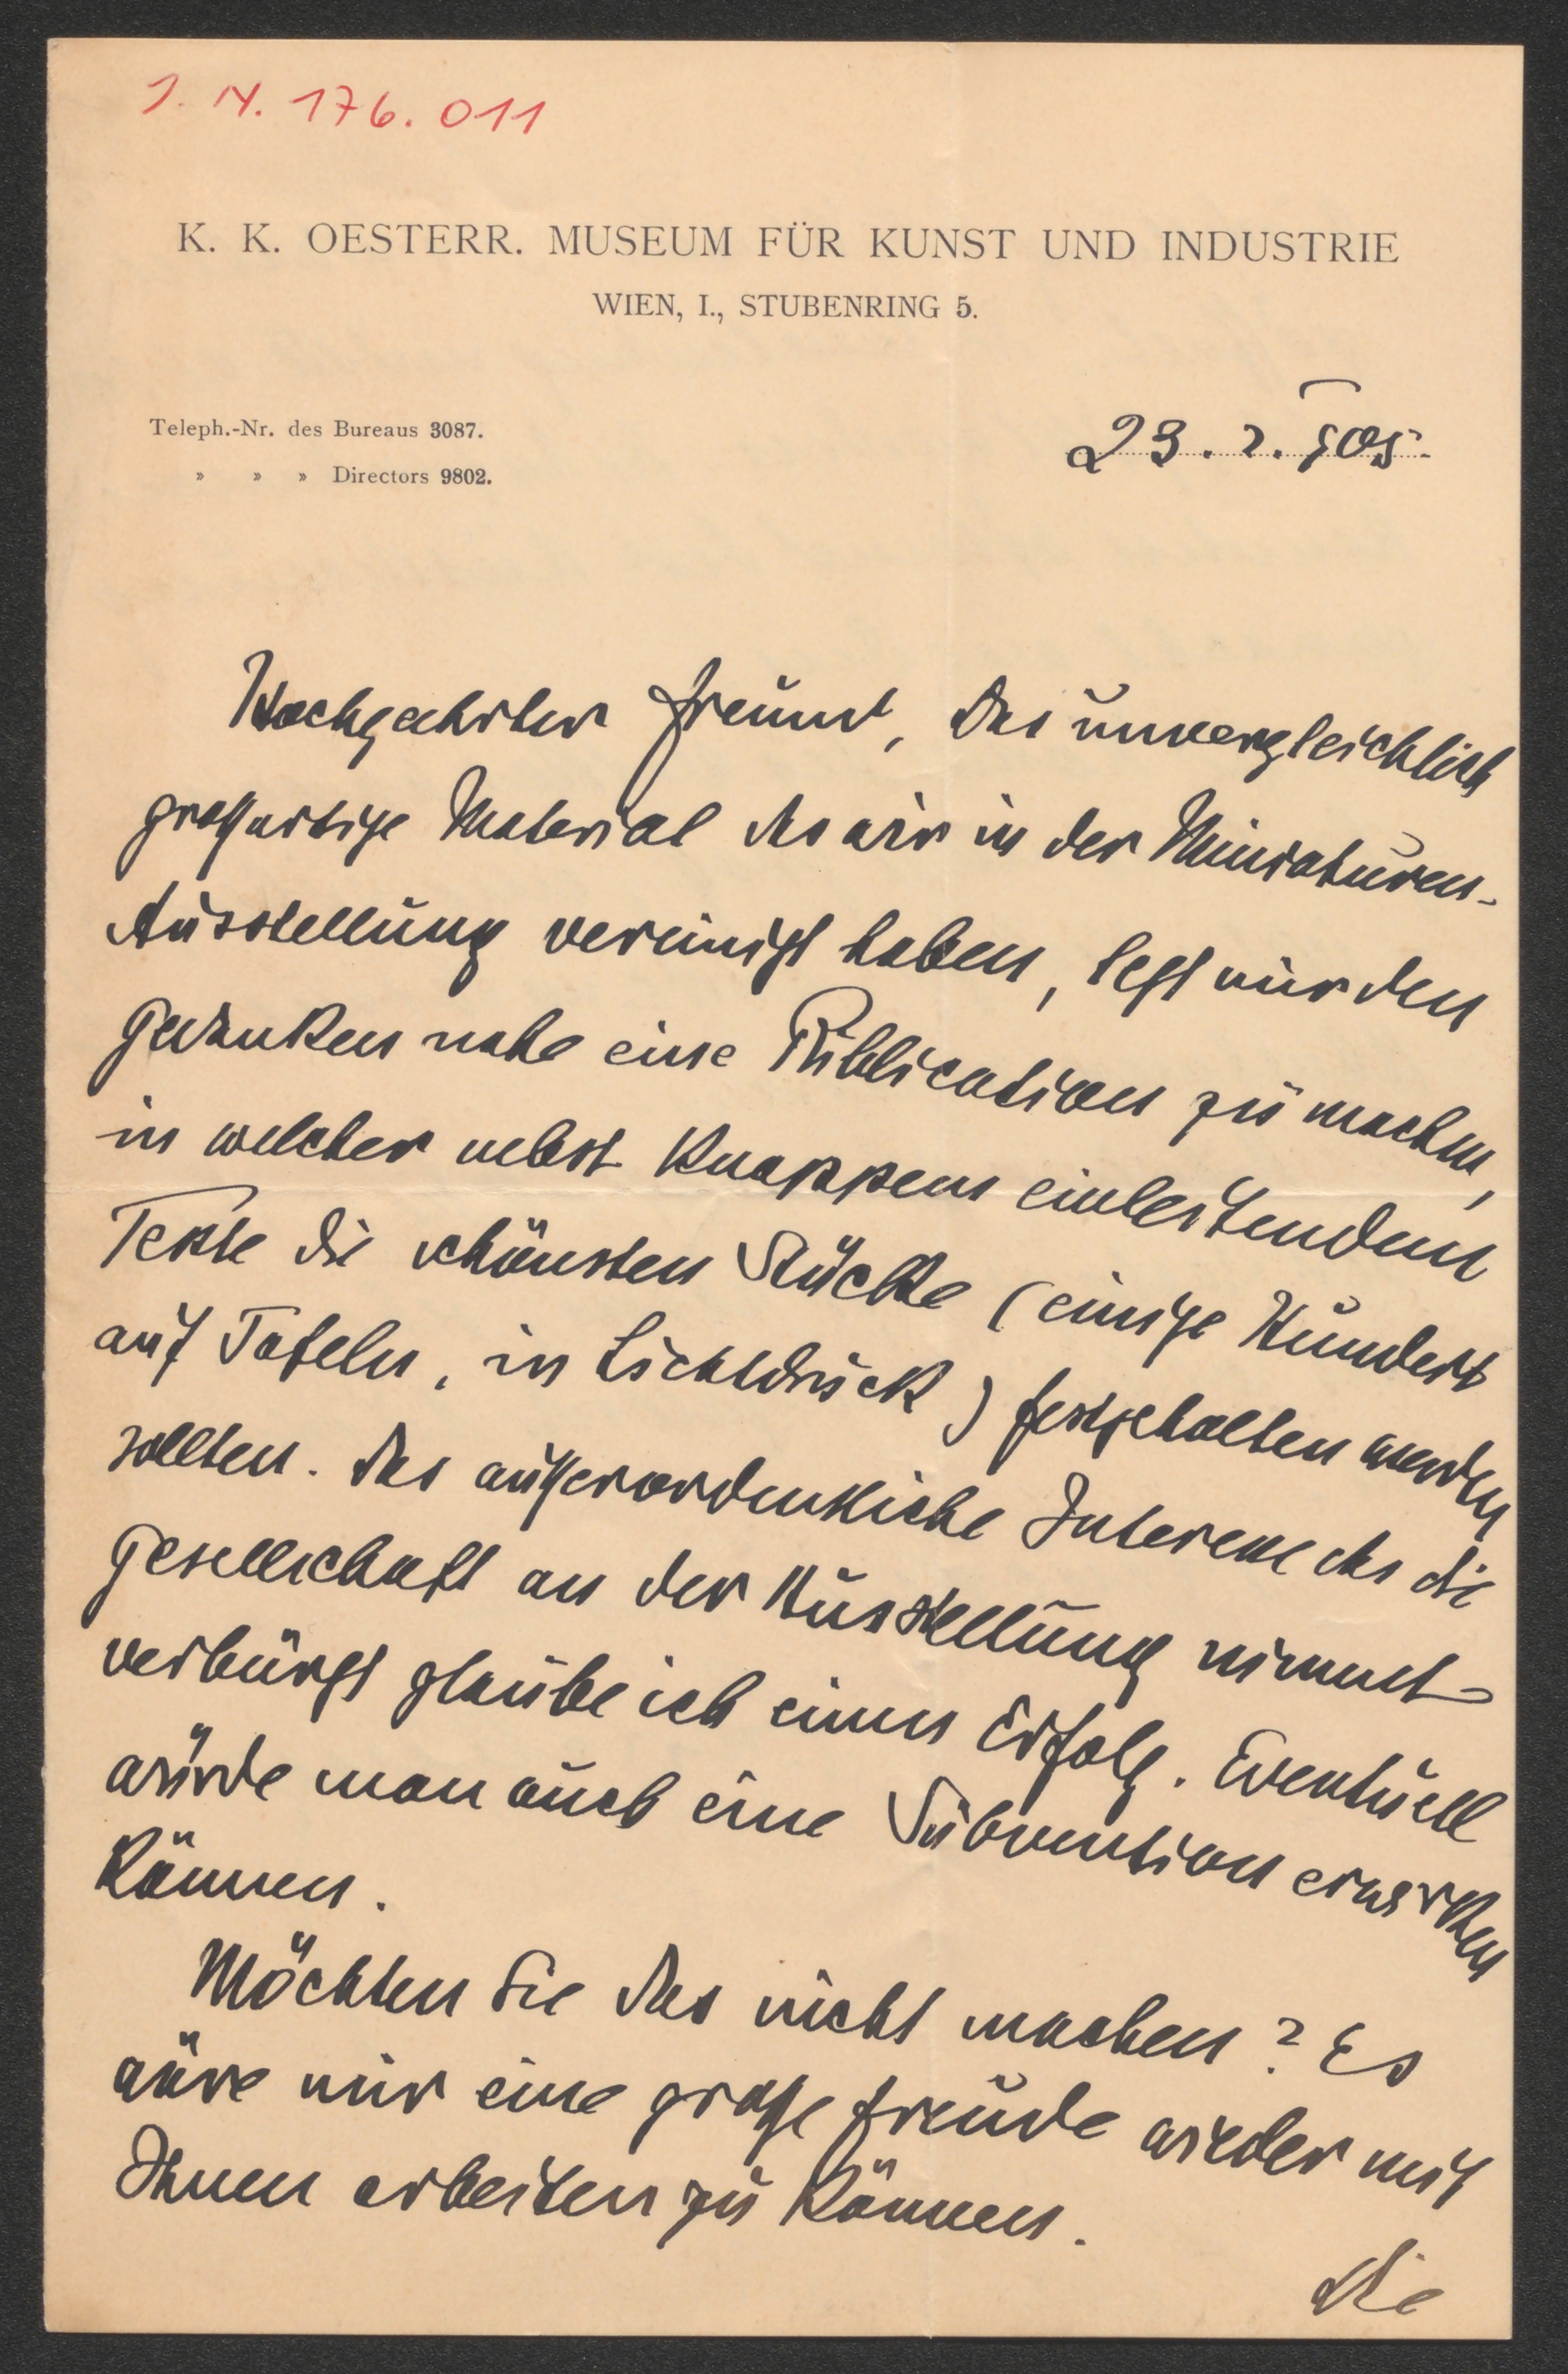 J. N. 176.011
K. K. OESTERR. MUSEUM FÜR KUNST UND INDUSTRIE
WIEN, I., STUBENRING 5.
Teleph.-Nr. des Bureaus 3087.
» » » Directors 9802.
23. 2. 905.
Hochgeehrter Freund, das unvergleichlich
großartige Material das wir in der Miniaturen-
Ausstellung vereinigt haben, legt mir den
Gedanken nahe eine Publication zu machen,
in welcher nebst knappem einleitendem
Texte die schönsten Stücke (einige Hundert
auf Tafeln, in Lichtdruck) festgehalten werden
sollten. Das außerordentliche Interesse das die
Gesellschaft an der Ausstellung nimmt
verbürgt glaube ich einen Erfolg. Eventuell
würde man auch eine Subvention erwirken
können.
Möchten Sie das nicht machen? Es
wäre mir eine große Freude wieder mit
Ihnen arbeiten zu können.
Die